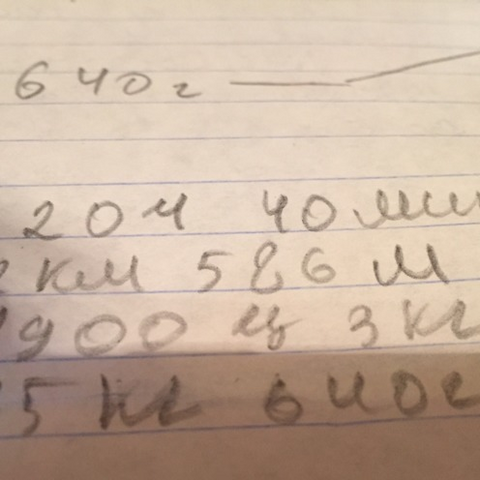 640г
20ч 40мин
км 586 м
900 ц 3 кг
5 кг 640г